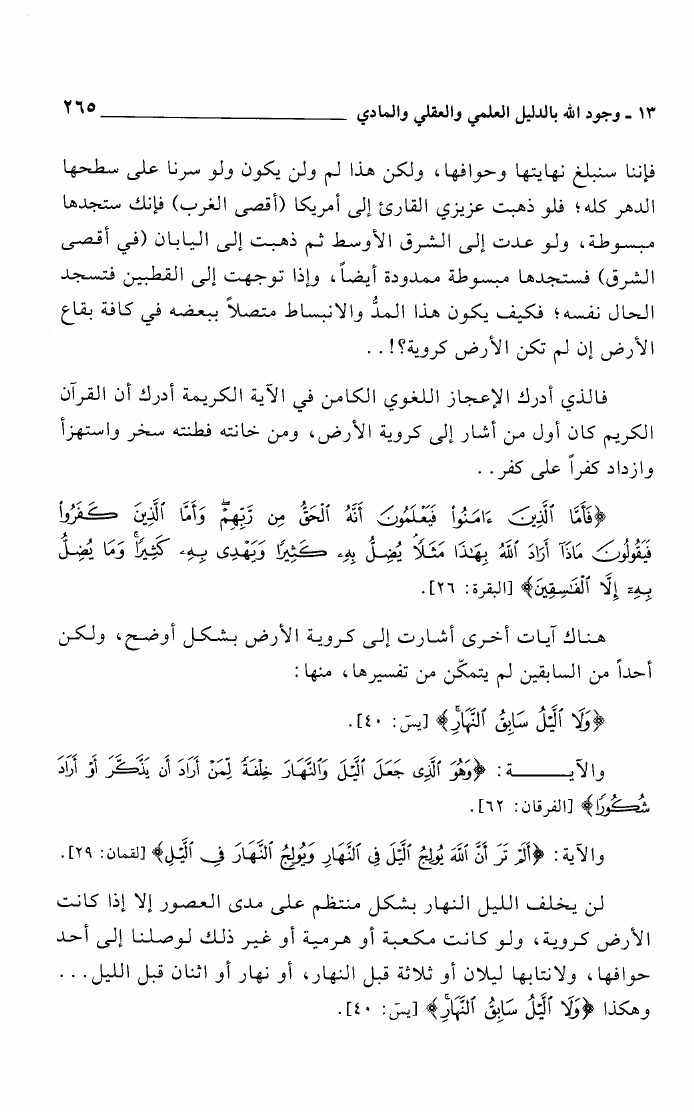 ١٣ - وجود الله بالدليل العلمي والعقلي والمادي ــــــــــــــــــــ ٢٦٥
فإننا سنبلغ نهايتها وحوافها، ولكن هذا لم ولن يكون ولو سرنا على سطحها
الدهر كله؛ فلو ذهبت عزيزي القارئ إلى أمريكا (أقصى الغرب) فإنك ستجدها
مبسوطة، ولو عدت إلى الشرق الأوسط ثم ذهبت إلى اليابان (في أقصى
الشرق) فستجدها مبسوطة ممدودة أيضاً، وإذا توجهت إلى القطبين فتسجد
الحال نفسه؛ فكيف يكون هذا المدُّ والانبساط متصلاً ببعضه في كافة بقاع
الأرض إن لم تكن الأرض كروية؟!..
فالذي أدرك الإعجاز اللغوي الكامن في الآية الكريمة أدرك أن القرآن
الكريم كان أول من أشار إلى كروية الأرض، ومن خانته فطنته سخر واستهزأ
وازداد كفراً على كفر..
﴿فَأَمَّا ٱلَّذِينَ ءَامَنُوا۟ فَيَعْلَمُونَ أَنَّهُ ٱلْحَقُّ مِن رَّبِّهِمْ ۖ وَأَمَّا ٱلَّذِينَ كَفَرُوا۟
فَيَقُولُونَ مَاذَآ أَرَادَ ٱللَّهُ بِهَٰذَا مَثَلًا ۘ يُضِلُّ بِهِۦ كَثِيرًا وَيَهْدِى بِهِۦ كَثِيرًا ۚ وَمَا يُضِلُّ
بِهِۦٓ إِلَّا ٱلْفَٰسِقِينَ﴾ [البقرة: ٢٦].
هناك آيات أخرى أشارت إلى كروية الأرض بشكل أوضح، ولكن
أحداً من السابقين لم يتمكّن من تفسيرها، منها:
﴿وَلَا ٱلَّيْلُ سَابِقُ ٱلنَّهَارِ ۚ﴾ [يسۤ: ٤٠].
والآيـــــــة: ﴿وَهُوَ ٱلَّذِى جَعَلَ ٱلَّيْلَ وَٱلنَّهَارَ خِلْفَةً لِّمَنْ أَرَادَ أَن يَذَّكَّرَ أَوْ أَرَادَ
شُكُورًا﴾ [الفرقان: ٦٢].
والآية: ﴿أَلَمْ تَرَ أَنَّ ٱللَّهَ يُولِجُ ٱلَّيْلَ فِى ٱلنَّهَارِ وَيُولِجُ ٱلنَّهَارَ فِى ٱلَّيْلِ﴾ [لقمان: ٢٩].
لن يخلف الليل النهار بشكل منتظم على مدى العصور إلا إذا كانت
الأرض كروية، ولو كانت مكعبة أو هرمية أو غير ذلك لوصلنا إلى أحد
حوافها، ولانتابها ليلان أو ثلاثة قبل النهار، أو نهار أو اثنان قبل الليل...
وهكذا ﴿وَلَا ٱلَّيْلُ سَابِقُ ٱلنَّهَارِ ۚ﴾ [يسۤ: ٤٠].